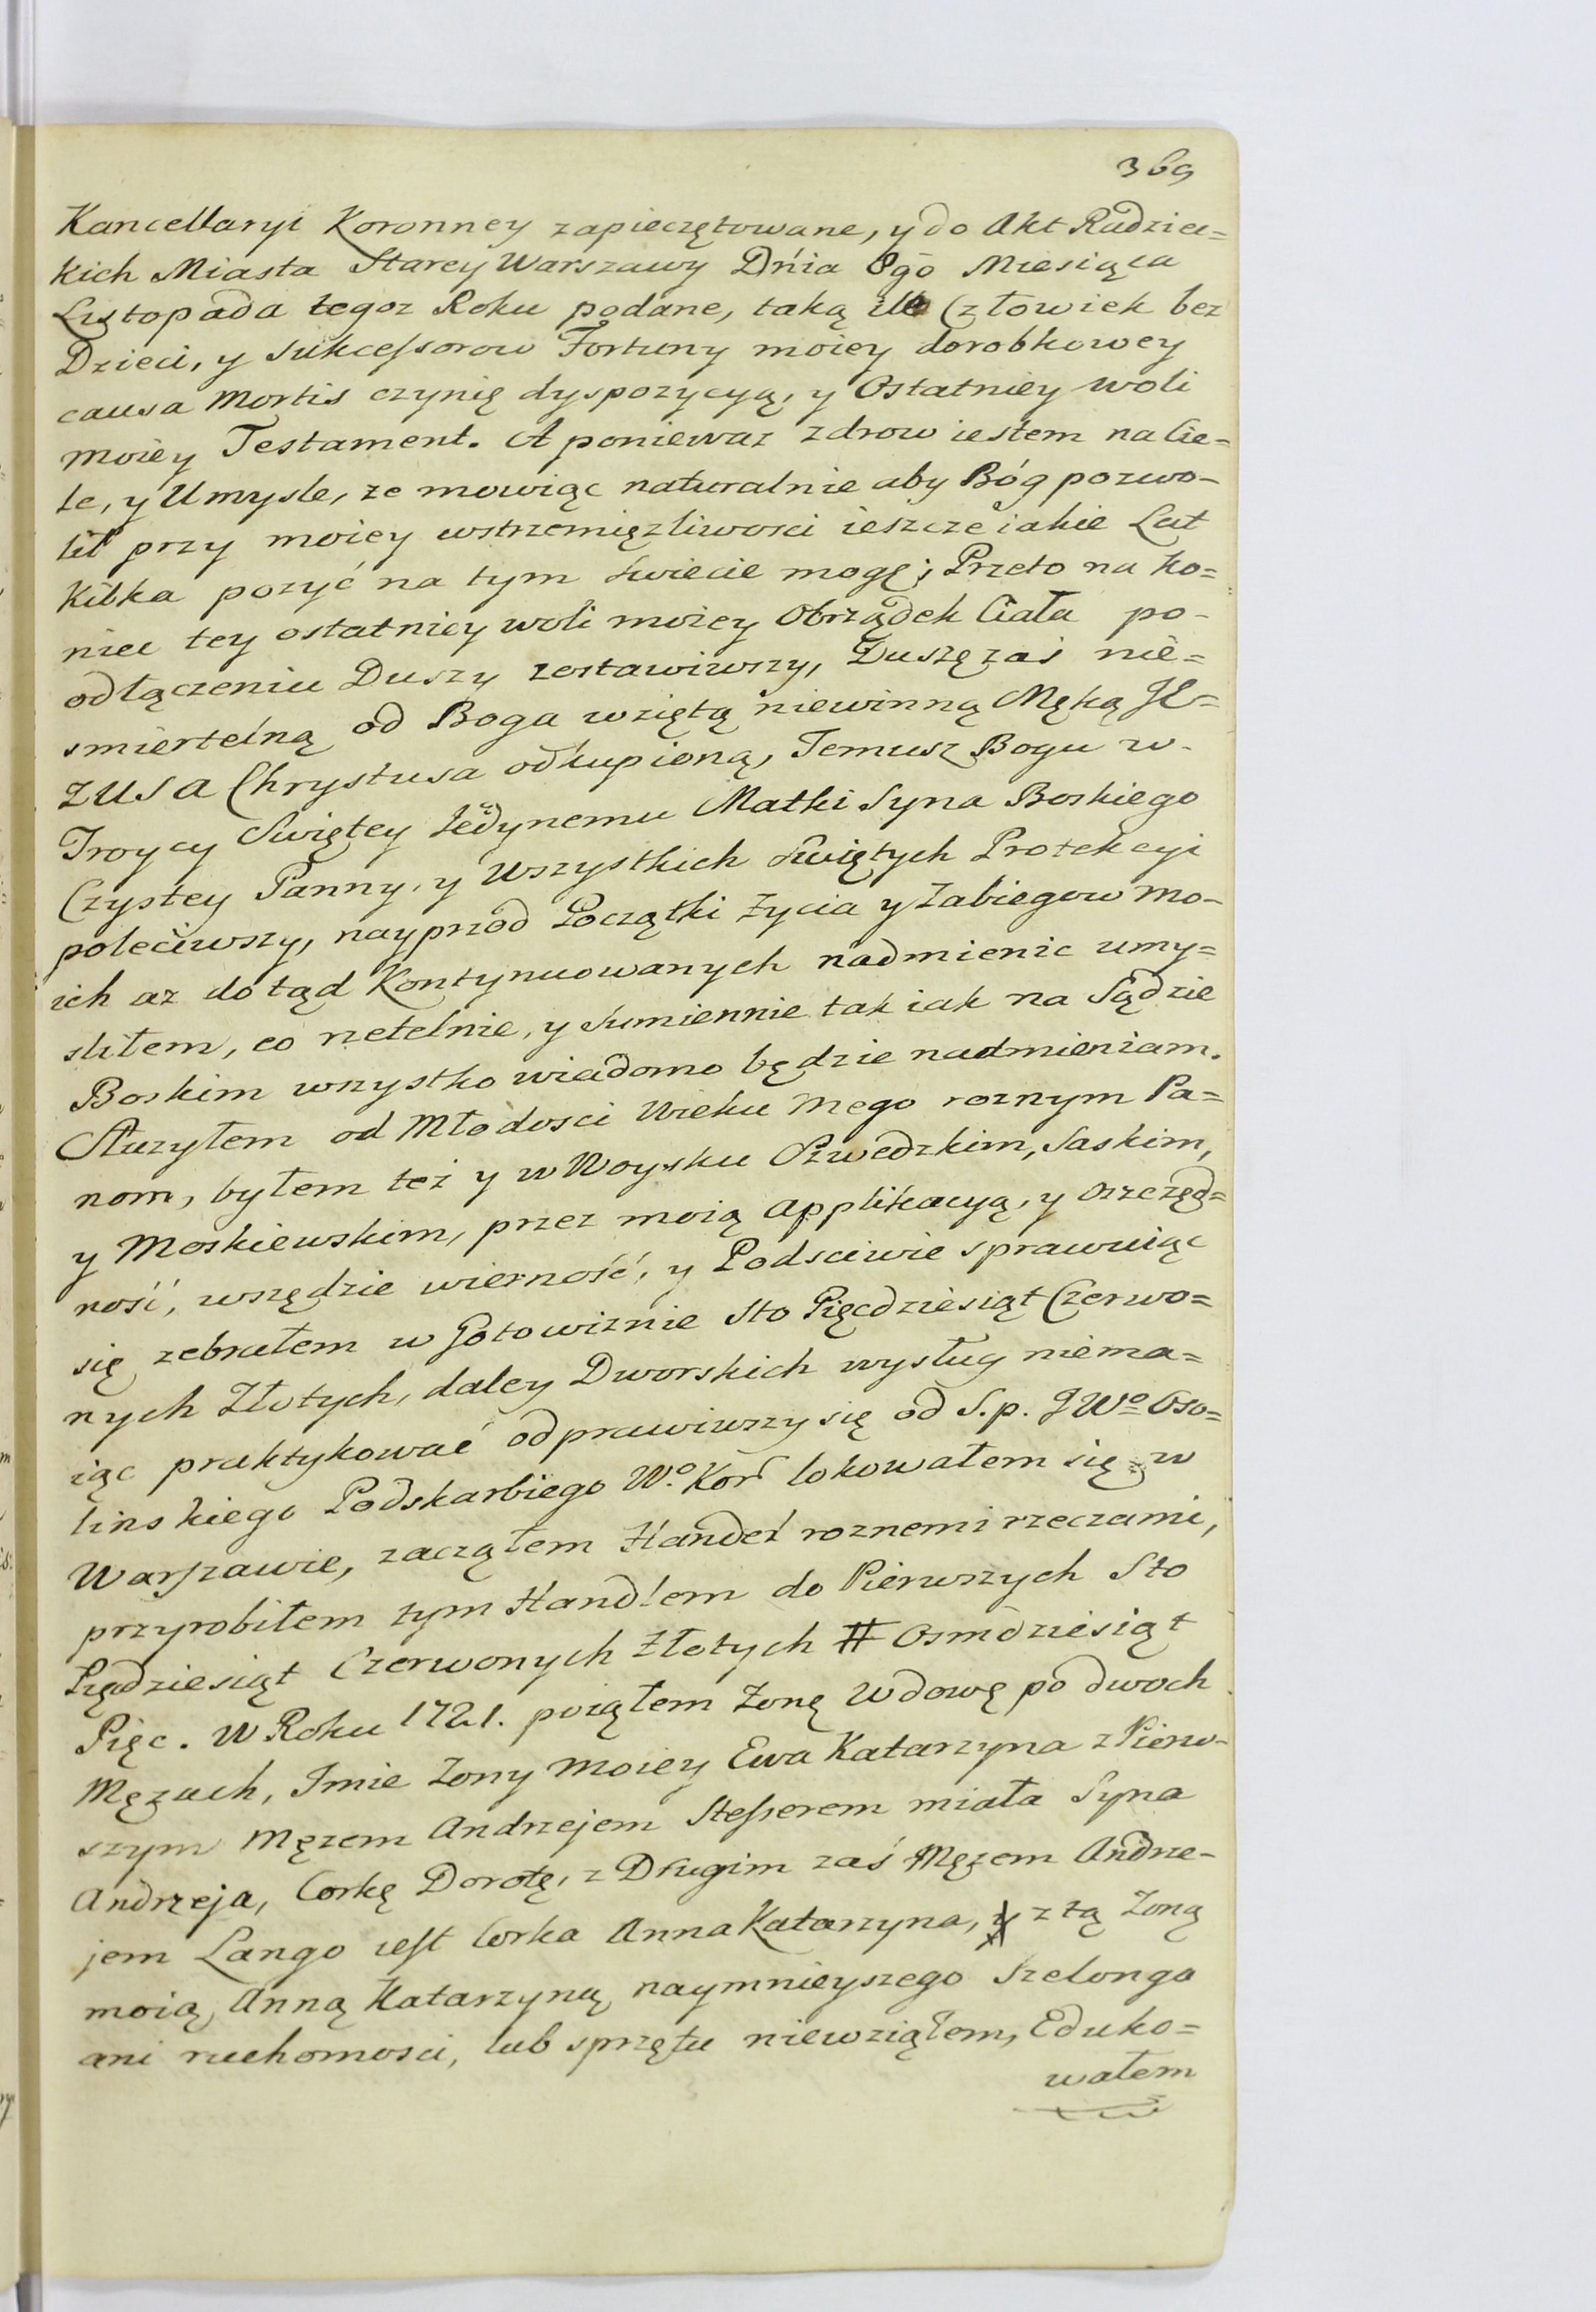 369
Kancellaryi Koronney zapieczętowane, y do Akt Radziec=
kich Miasta Starey Warszawy Dńia 8go Miesiąca
Listopada tegoz Roku podane, taką ile Człowiek bez
Dzieci, y Sukcessorow Fortuny moiey dorobkowey
causa Mortis czynię dyspozycyą, y Ostatniey woli
moiey Testament. A poniewaz zdrow iestem na Cie=
le, y Umysle, ze mowiąc naturalnie aby Bóg pozwo-
lił przy moiey wstrzemięzliwosci ieszcze iakie Lat
Kilka pozyć na tym Swiecie mogę; Przeto na Ko=
niec tey ostatniey woli moiey Obrządek Ciała po-
odłączeniu Duszy zostawiwszy, Duszę zaś nie=
smiertelną od Boga wziętą niewinną Męką JE=
ZUSA Chrystusa odkupioną, Temusz Bogu w-
Troycy Swiętey Jedynemu Matki Syna Boskiego
Czystey Panny, y Wszystkich Swiętych Protekcyi
poleciwszy, nayprzod Początki Zycia y Zabiegow mo-
ich az dotąd Kontynuowanych nadmienic umy=
sliłem, co rzetelnie, y Sumiennie tak iak na Sądzie
Boskim wszystko wiadomo będzie nadmieniam.
Słuzyłem od Młodosci Wieku mego roznym Pa=
nom, byłem też y w Woysku Szwedzkim, Saskim,
y Moskiewskim, przez moią applikacyą, y oszczęd=
ność, wszędzie wierność, y Podsciwie sprawuiąc
się zebrałem w Gotowiznie Sto Pięcdziesiąt Czerwo=
nych Złotych, daley Dworskich wysług niema=
iąc praktykować odprawiwszy się od S.p. JWo Oso=
linskiego Podskarbiego Wo. Kor lokowałem się w
Warszawie, zacząłem Handel roznemi rzeczami,
przyrobiłem tym Handlem do Pierwszych Sto
Pięcdziesiąt Czerwonych Złotych # Osmdziesiąt
Pięc. W Roku 1721. poiąłem Zonę Wdowę po dwoch
Męzach, Imie Zony Moiey Ewa Katarzyna z Pierw-
szym Męzem Andrzejem Stesserem miała Syna
Andrzeja, Corkę Dorotę, z Drugim zaś Męzem Andrze-
jem Lango iest Corka Anna Katarzyna, z tą Zoną
moią, Anną Katarzyną naymnieyszego Szelonga
ani ruchomosci, lub sprzętu niewziąłem, Eduko=
wałem